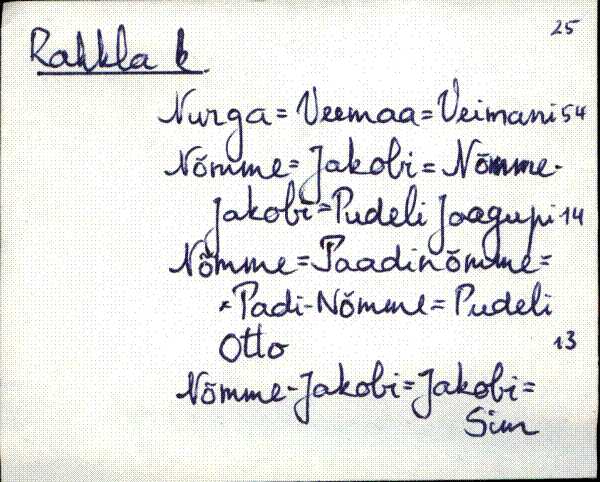 25
Rakkla k.
Nurga = Veemaa = Veimani 54
Nõmme = Jakobi = Nõmme-
Jakobi = Pudeli Jaagupi 14
Nõmme = Paadinõmme =
= Padi-Nõmme = Pudeli
Otto 13
Nõmme-Jakobi = Jakobi =
Sim